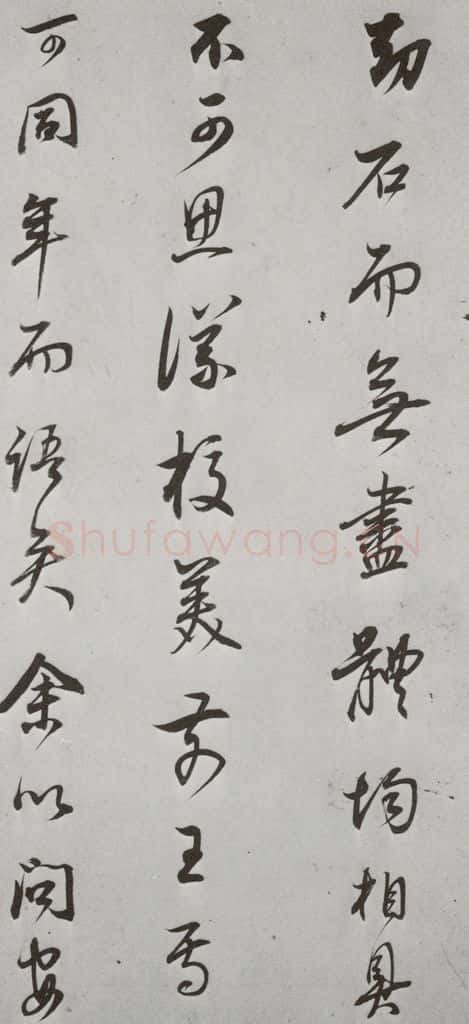 劫石而無盡體均相具
不可思議校美前王焉
可同年而語矣余以問安
Shufawang.CN